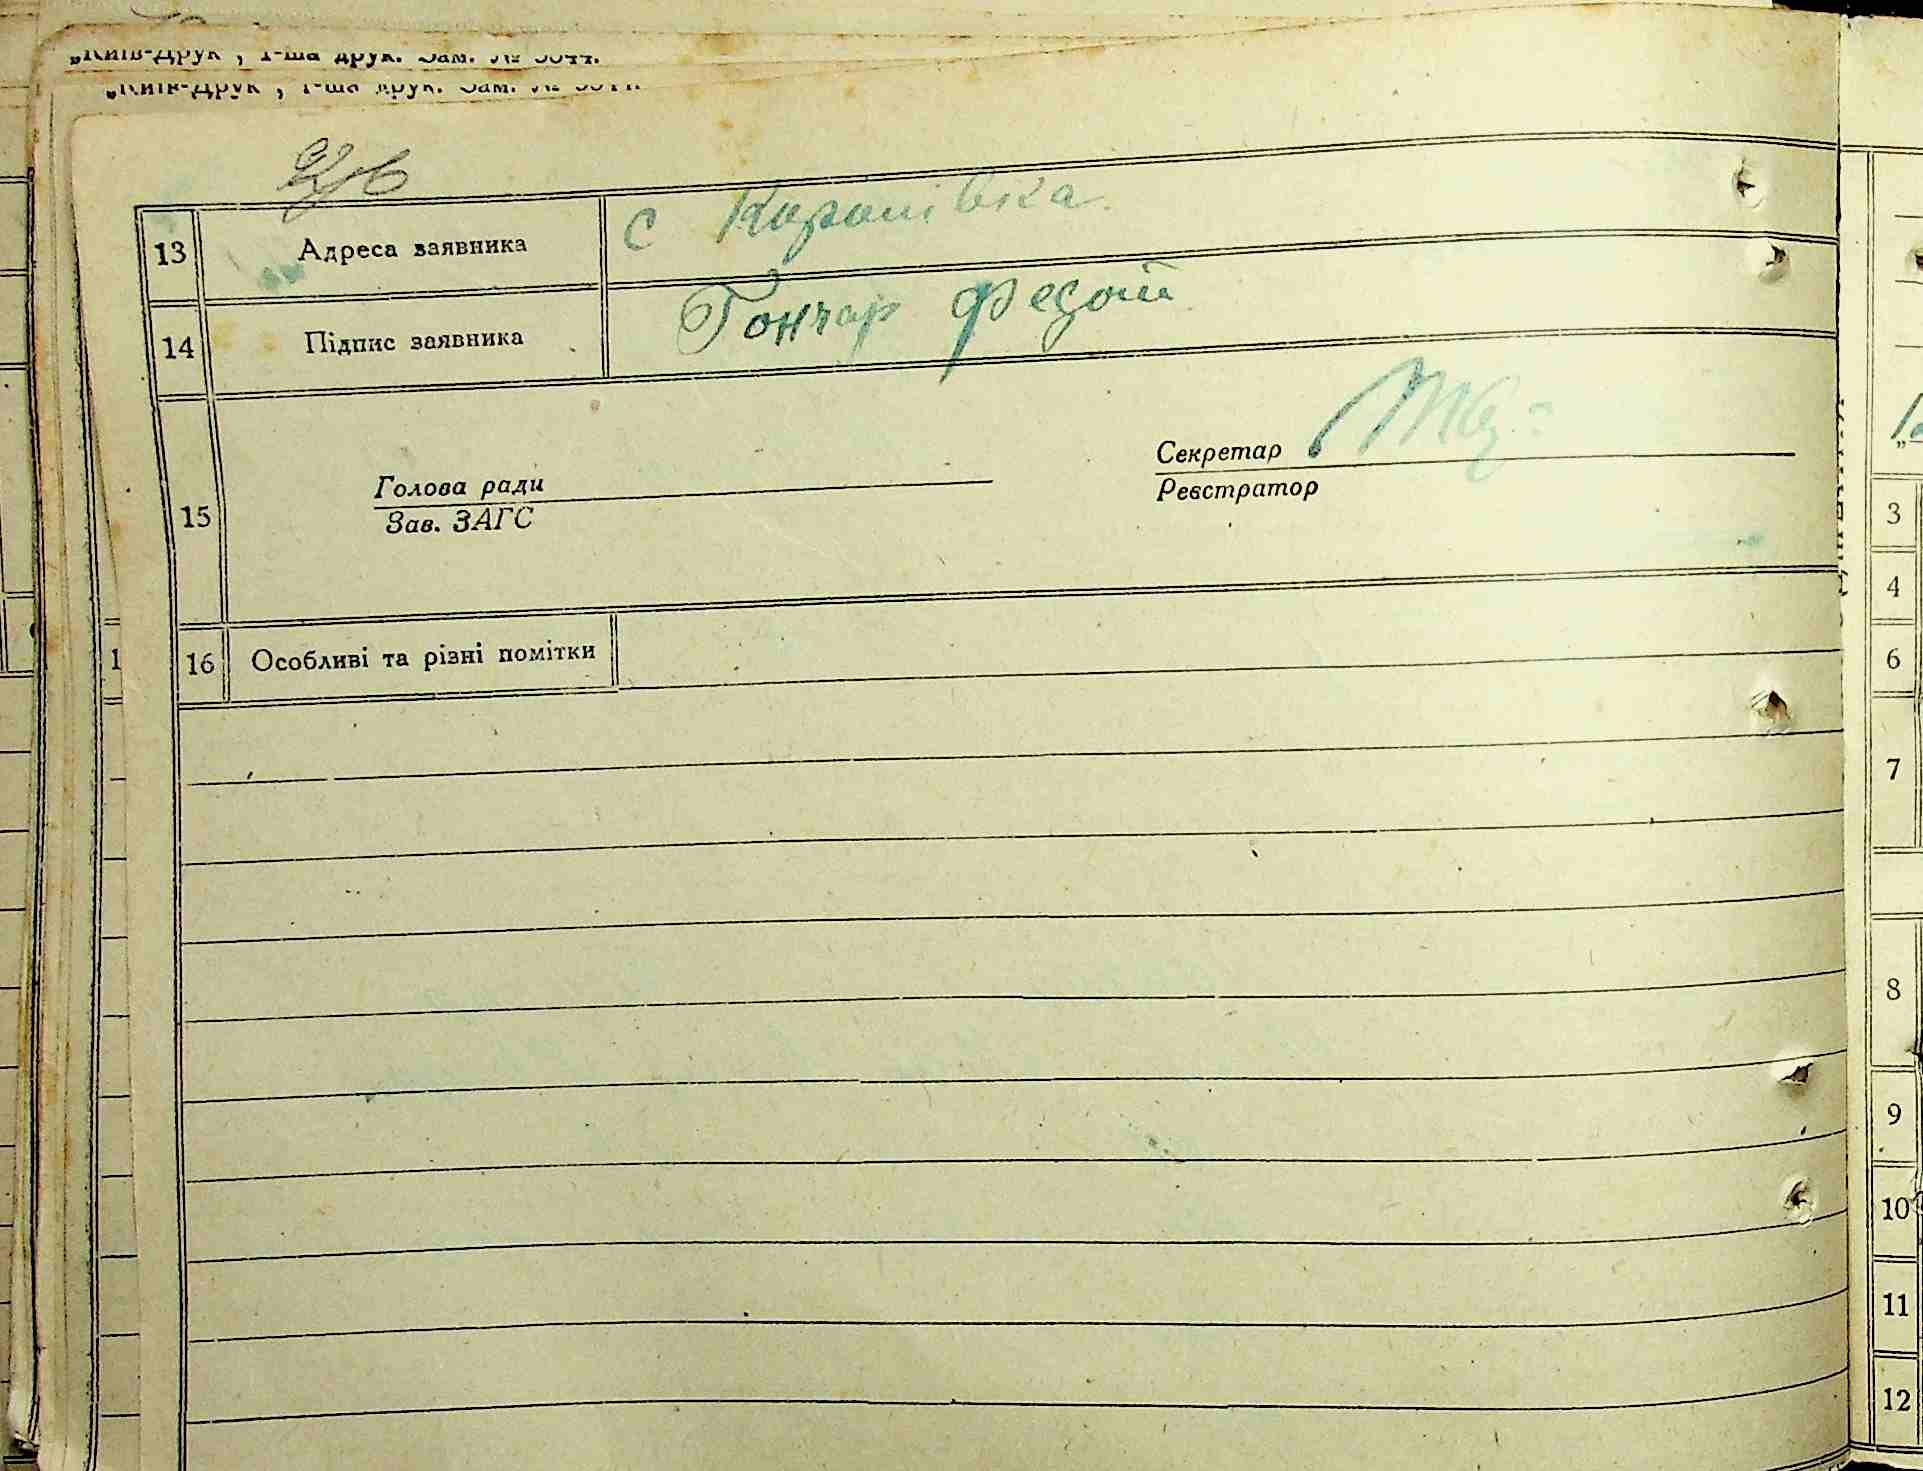 „Київ-Друк", 1-ша друк. Зам. №
„Київ-Друк", 1-ша друк. Зам. №
13 Адреса заявника с
14 Підпис заявника Гончар Федот
15
Голова ради
Зав. ЗАГС
Секретар
Реєстратор
16 Особливі та різні помітки
1
3
4
6
7
8
9
10
11
12